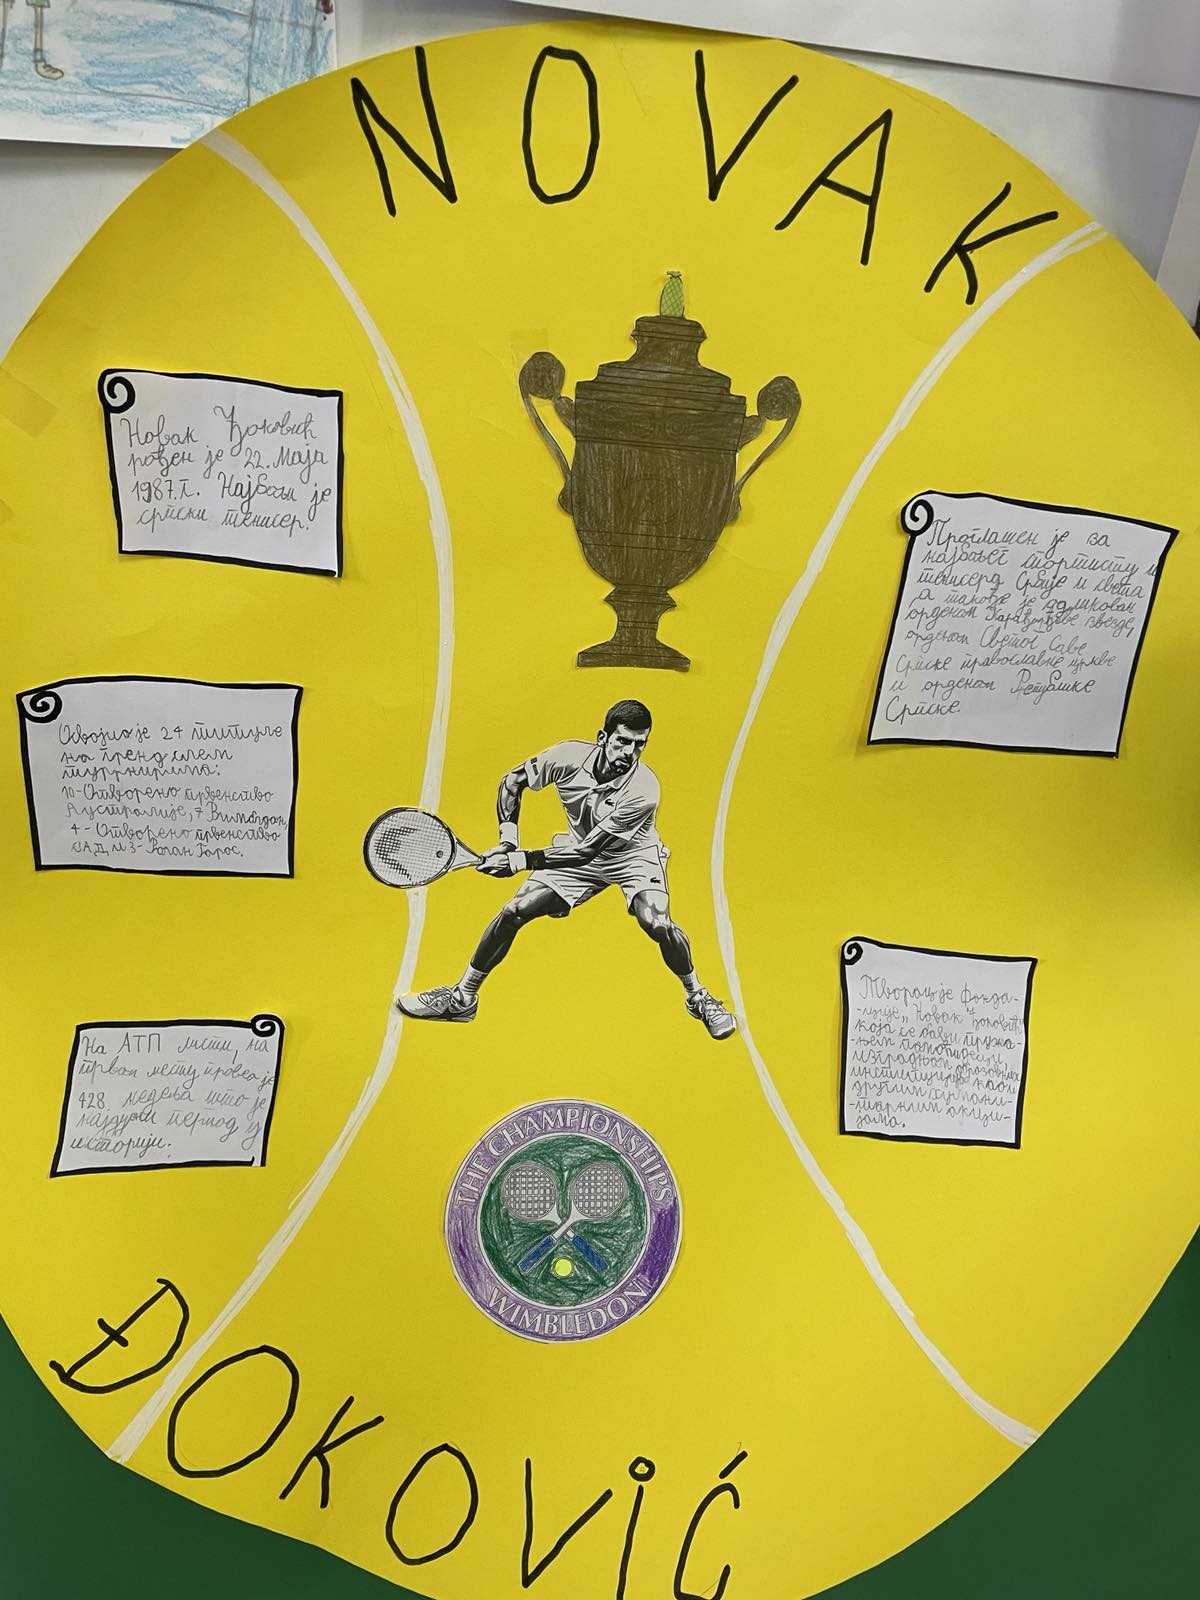 NOVAK
Новак Ђоковић
рођен је 22. маја
1987. г. Најбољи је
српски тенисер.
Освојио је 24 титуле
на гренд слем
турнирима:
10-Отворено првенство
Аустралије, 7 Вимблдон,
4-Отворено првенство
САД и 3-Ролан Гарос.
На АТП листи, на
првом месту провео је
428 недеља што је
најдужи период у
историји.
Проглашен је за
најбољег спортисту и
тенисера Србије и света
а такође је одликован
орденом Карађорђеве звезде,
орденом Светог Саве
Српске православне цркве
и орденом Републике
Српске.
Творац је фонда-
-ције „Новак Ђоковић"
која се бави пружа-
-њем помоћи деци,
изградњом образовних
институција као и
другим хумани-
-тарним акци-
јама.
THE CHAMPIONSHIPS
WIMBLEDON
ĐOKOVIĆ